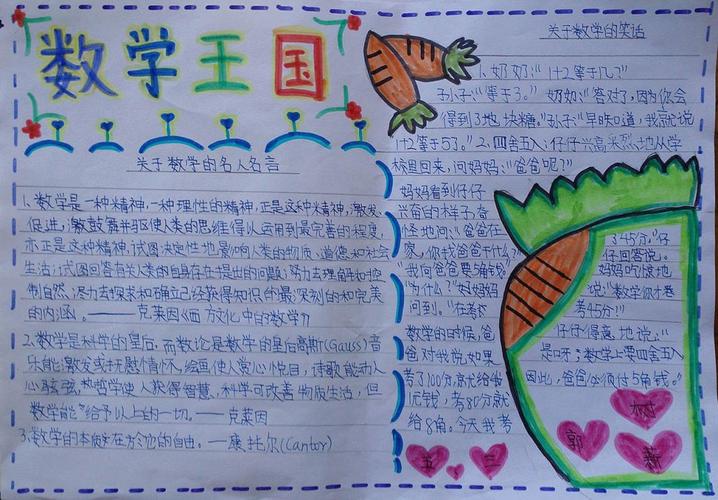 数学王国
关于数学的名人名言
1.数学是一种精神,一种理性的精神,正是这种精神,激发,
促进,激鼓舞并驱使人类的思维得以运用到最完善的程度,
亦正是这种精神,试图决定性地影响人类的物质、道德和社会
生活;试图回答有关人类的自身存在提出的问题;努力去理解和控
制自然;尽力去探求和确立已经获得知识的最深刻的和完美
的内涵。——克莱因《西方文化中的数学》
2.数学是科学的皇后,而数论是数学的皇后高斯(Gauss)音
乐能激发或抚慰情怀,绘画使人赏心悦目,诗歌能动人
心弦,哲学使人获得智慧,科学可改善物质生活,但
数学能给予以上的一切。——克莱因
3.数学的本质在于它的自由。—康托尔(Cantor)
关于数学的笑话
1、奶奶:"1+2等于几?"
孙子:"等于3。"奶奶:"答对了,因为你会
得到3块糖。"孙子:"早知道,我就说
1+2等于5了。"2、四舍五入:仔仔兴高采烈地从学
校里回来,问妈妈:"爸爸呢?"
妈妈看到仔仔
兴奋的样子,奇
怪地问:"爸爸在
家,你找爸爸干什么?"
"我向爸爸要5角钱。"
"为什么?"妈妈
问到。"在考
数学的时候,爸
爸对我说,如果
考了100分,就给我
1元钱,考80分就
给8角。今天我考
了45分。"仔
仔回答说。
妈妈吃惊地
说:"数学你才
考45分!"
仔仔得意地说:"
是呀,数学上要四舍五入
因此,爸爸必须付5角钱。"
五 三
郭 树 新